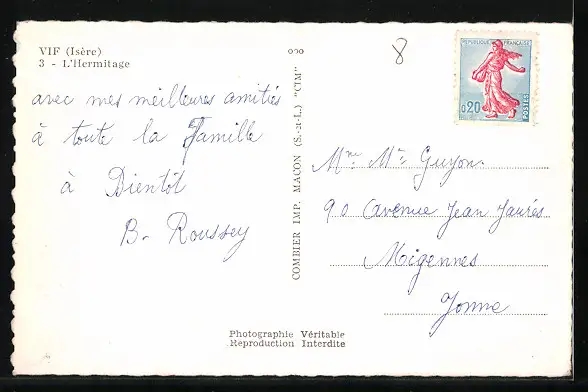 VIF (Isère)
3 - L'Hermitage
avec mes meilleures amitiés
à toute la famille
à Bientôt
B. Roussey
COMBIER IMP. MACON (S.-et-L.) "CIM"
8
REPUBLIQUE FRANÇAISE
0,20
POSTES
Mme Mr Guyon.
90 avenue Jean Jaurès
Migennes
Yonne
Photographie Véritable
Reproduction Interdite